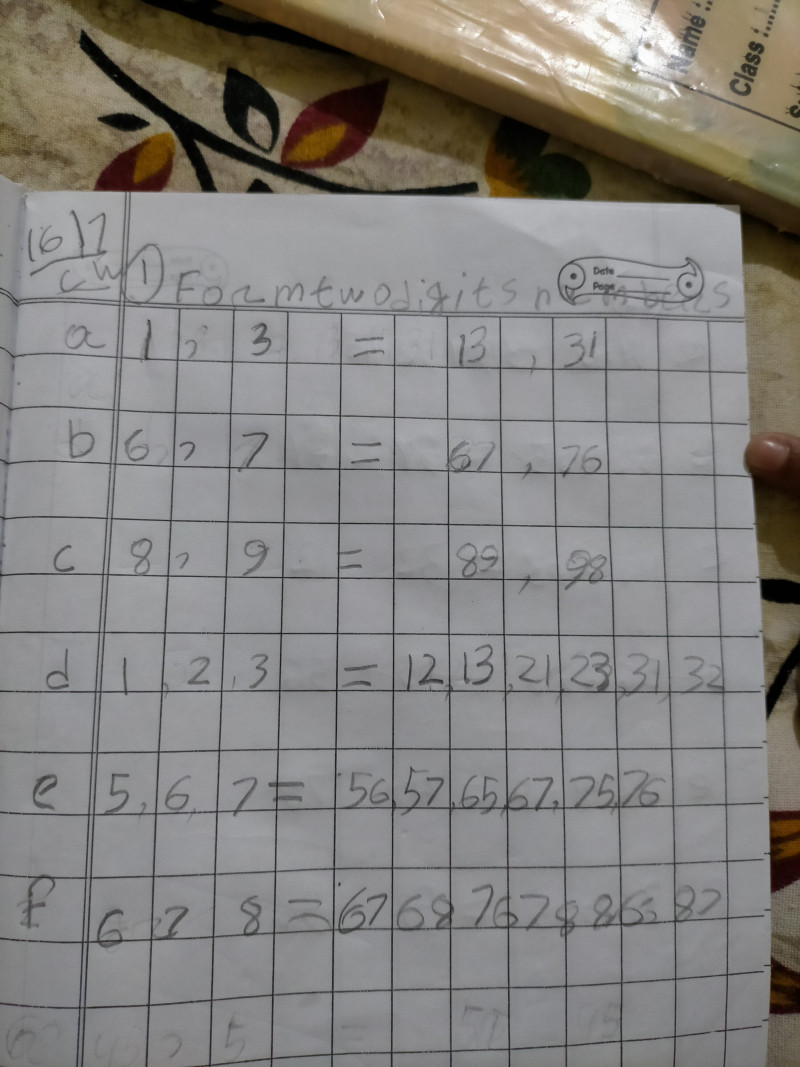 Name :..
Class :......
S
16/7
CW
Date
Page
① Form two digits numbers
a 1, 3 = 13, 31
b 6, 7 = 67, 76
c 8, 9 = 89, 98
d 1, 2, 3 = 12, 13, 21, 23, 31, 32
e 5, 6, 7 = 56, 57, 65, 67, 75, 76
f 6 7 8 = 67 68 76 78 86 87